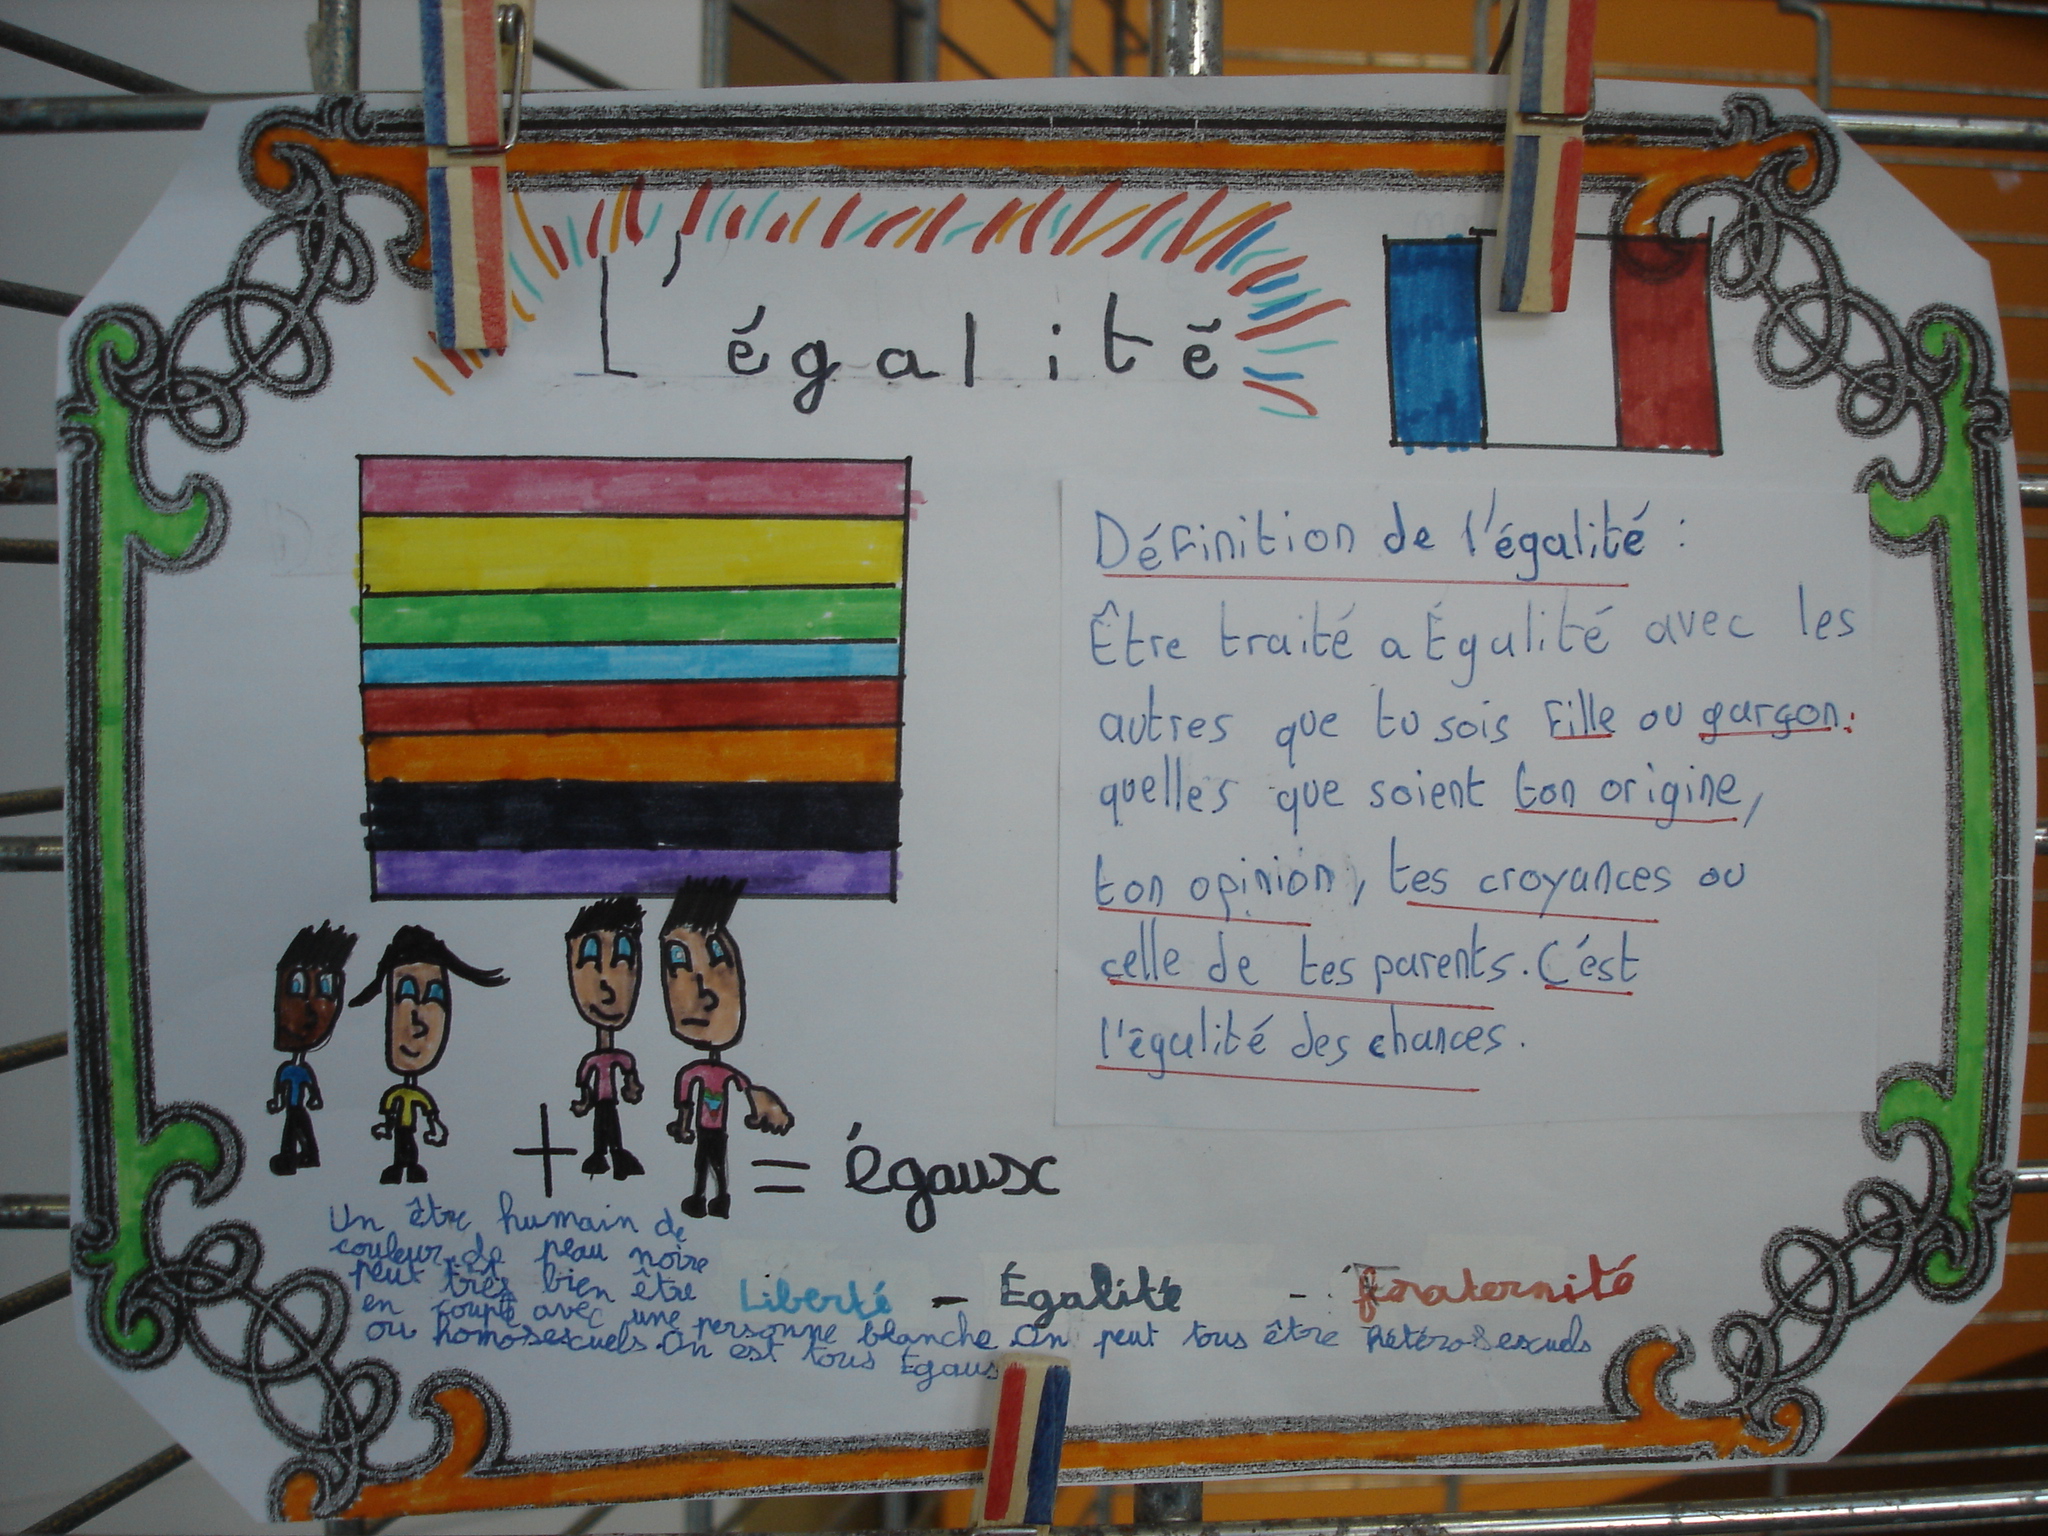 L'égalité
Définition de l'égalité :
Être traité a Égalité avec les
autres que tu sois Fille ou garçon.
quelles que soient ton origine,
ton opinion, tes croyances ou
celle de tes parents. C'est
l'égalité des chances.
+ = égaux
Un être humain de
couleur de peau noire
peut très bien être
en couple avec une personne blanche. On peut tous être hétérosexuels
ou homosexuels. On est tous Égaux
Liberté - Égalité - fraternité